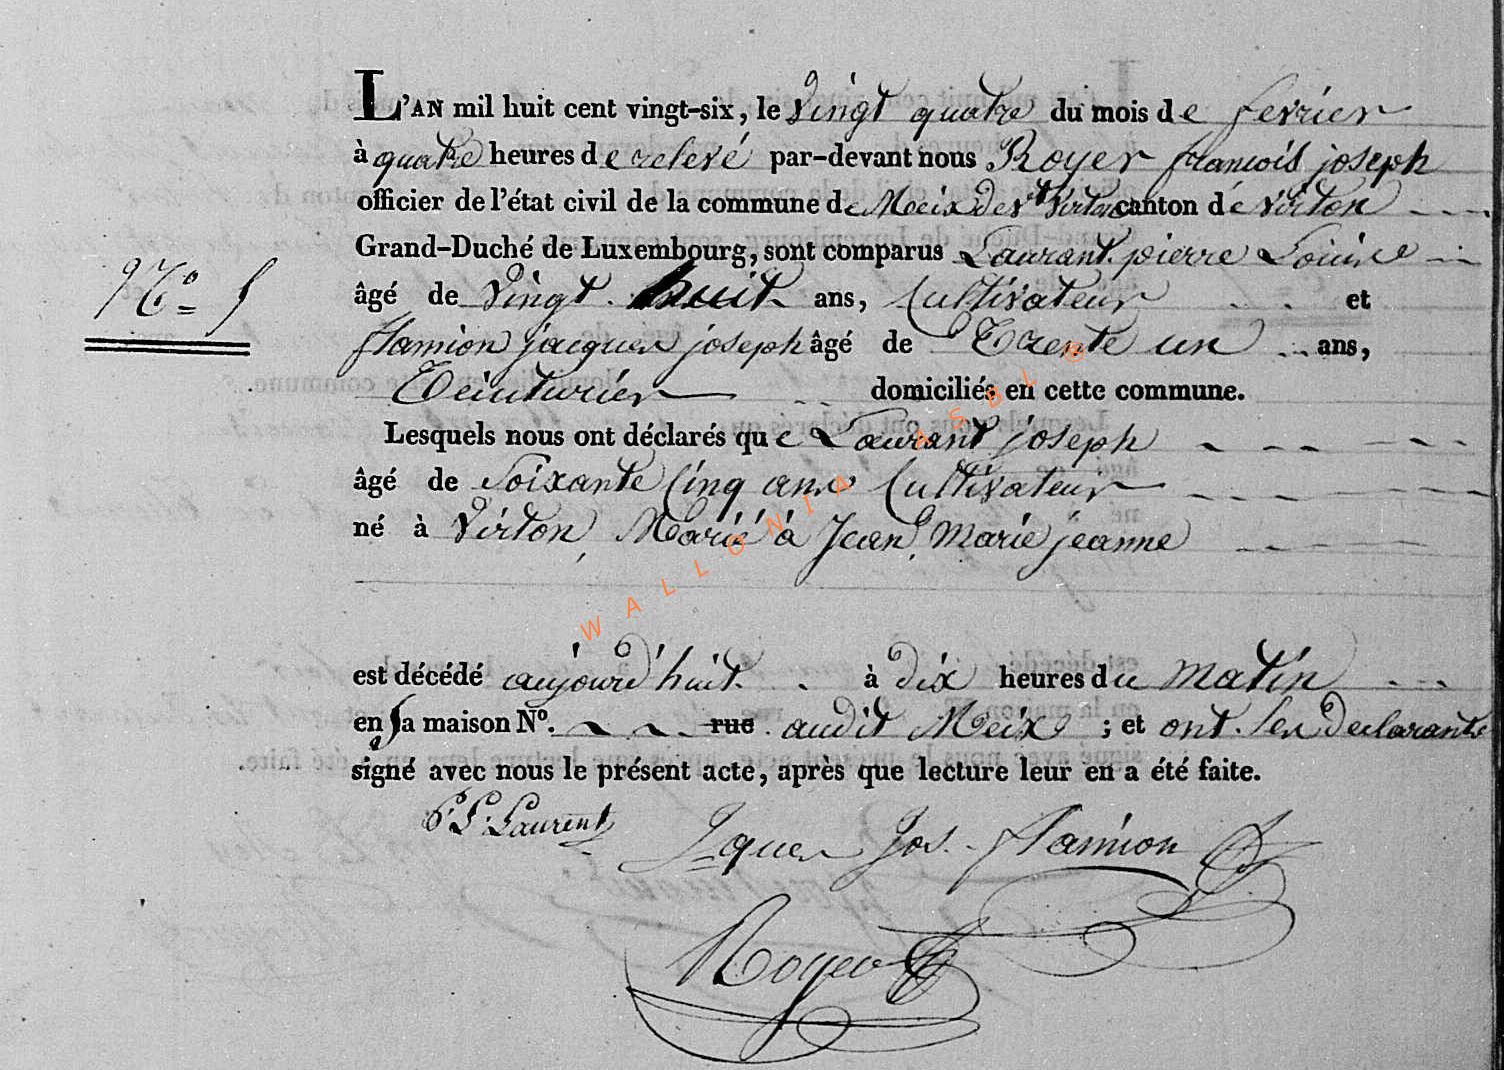 L'AN mil huit cent vingt-six, le vingt quatre du mois de fevrier
à quatre heures de relevé par-devant nous Royer francois joseph
officier de l'état civil de la commune de Meix devt Virton canton de virton
Grand-Duché de Luxembourg, sont comparus Laurant pierre Louis
N° 5
âgé de vingt huit ans, Cultivateur et
flamion jacques joseph âgé de Trente un ans,
Teinturier domiciliés en cette commune.
Lesquels nous ont déclarés que Laurant joseph
âgé de Soixante Cinq ans Cultivateur
né à Virton, Marié à Jean, Marie jeanne
est décédé aujourd'huit à dix heures du matin
en sa maison N°. rue audit Meix ; et ont les declarants
signé avec nous le présent acte, après que lecture leur en a été faite.
P. L. Laurent Jques Jos. flamion
Royer
WALLONIA ASBL ®